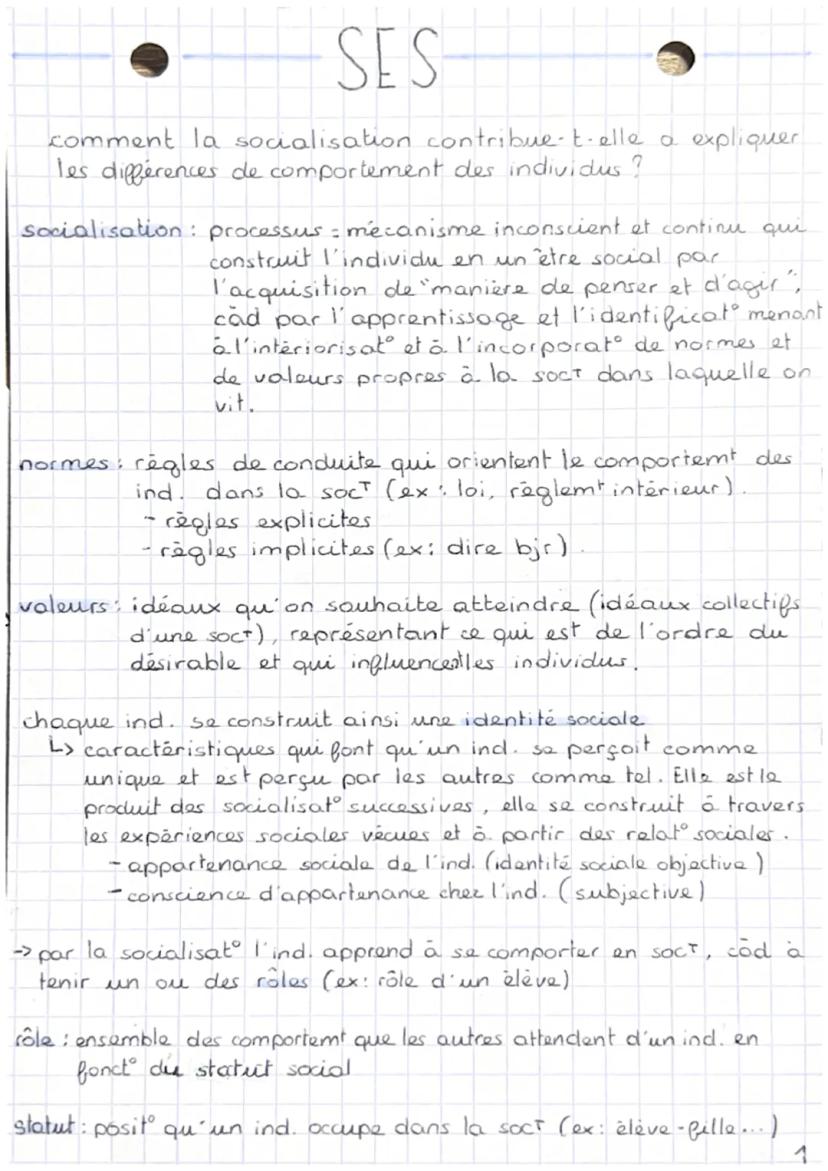 SES
comment la socialisation contribue-t-elle a expliquer
les différences de comportement des individus ?
socialisation : processus = mécanisme inconscient et continu qui
construit l'individu en un être social par
l'acquisition de "manière de penser et d'agir",
càd par l'apprentissage et l'identificat° menant
à l'intériorisat° et à l'incorporat° de normes et
de valeurs propres à la socT dans laquelle on
vit.
normes : règles de conduite qui orientent le comportemt des
ind. dans la socT (ex : loi, règlemt intérieur).
- règles explicites
- règles implicites (ex : dire bjr).
valeurs : idéaux qu'on souhaite atteindre (idéaux collectifs
d'une socT), représentant ce qui est de l'ordre du
désirable et qui influencent les individus.
chaque ind. se construit ainsi une identité sociale
↳ caractéristiques qui font qu'un ind. se perçoit comme
unique et est perçu par les autres comme tel. Elle est le
produit des socialisat° successives, elle se construit à travers
les expériences sociales vécues et à partir des relat° sociales.
- appartenance sociale de l'ind. (identité sociale objective)
- conscience d'appartenance chez l'ind. (subjective)
-> par la socialisat° l'ind. apprend à se comporter en socT, càd à
tenir un ou des rôles (ex : rôle d'un élève)
rôle : ensemble des comportemt que les autres attendent d'un ind. en
fonct° du statut social
statut : posit° qu'un ind. occupe dans la socT (ex : élève - fille...)
1